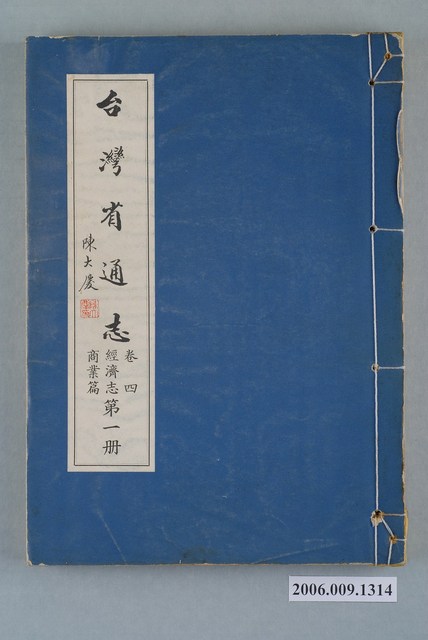 台灣省通志
陳大慶
卷四
經濟志第一册
商業篇
2006.009.1314